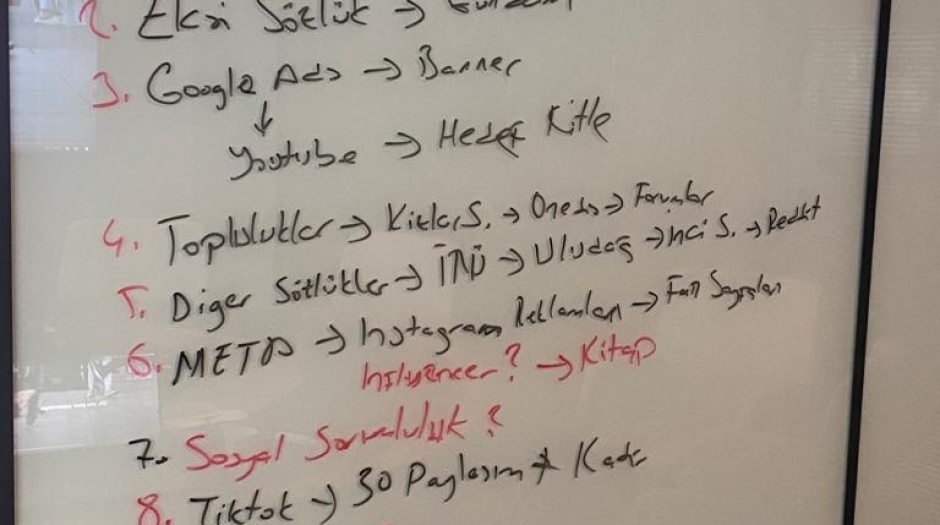 2. Ekşi Sözlük →
3. Google Ads → Banner
↓
Youtube → Hedef Kitle
4. Topluluklar → KizlarS. → Onedio → Forumlar
5. Diğer Sözlükler → İTÜ → Uludağ → inci S. → Reddit
6. META → Instagram Reklamları → Fan Sayfaları
Influencer? → Kitap
7. Sosyal Sorumluluk?
8. Tiktok → 30 Paylaşım →